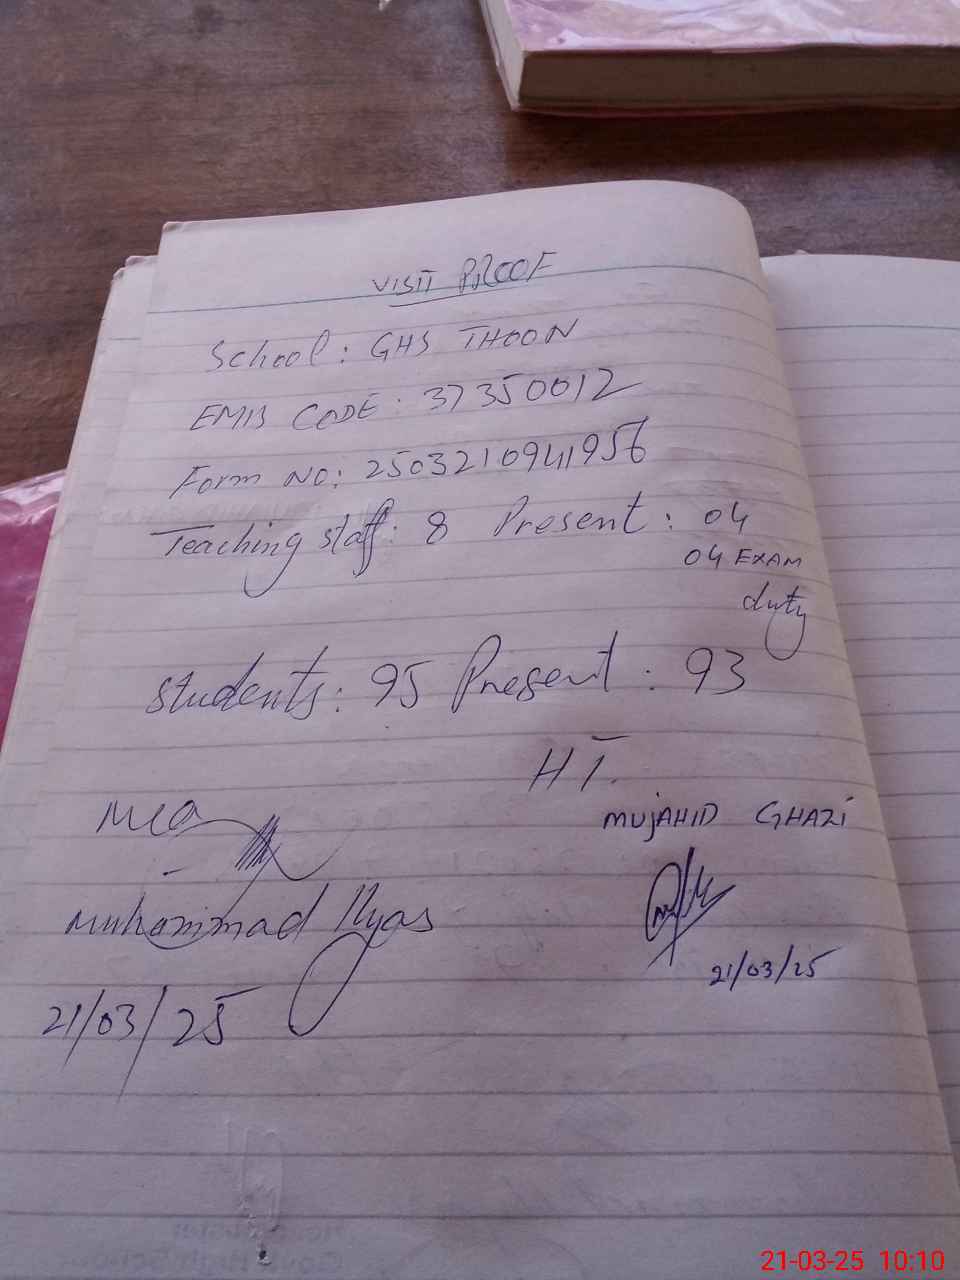 VISIT PROOF
School: GHS THOON
EMIS CODE: 37350012
Form NO: 2503210941956
Teaching staff: 8 Present: 04
04 EXAM
duty
Students: 95 Present: 93
HT.
MUJAHID GHAZI
21/03/25
MEA
Muhammad Ilyas
21/03/25
21-03-25 10:10